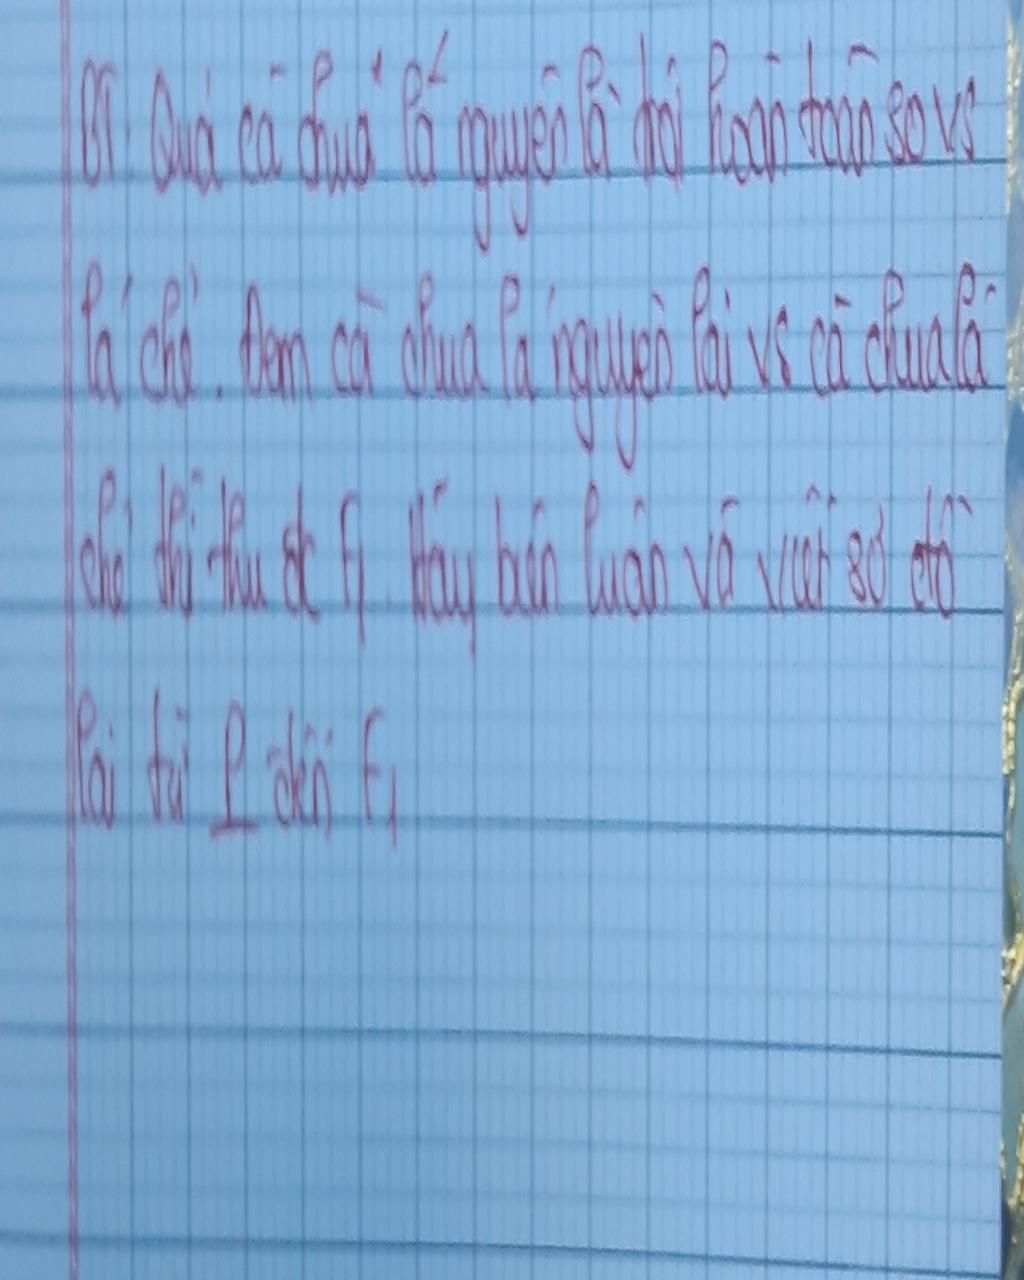 BT. Quả cà chua lá nguyên là trội hoàn toàn so vs
lá chẻ. Đem cà chua lá nguyên lai vs cà chua lá
chẻ thì thu đc F1. Hãy biện luận và viết sơ đồ
lai từ P đến F1